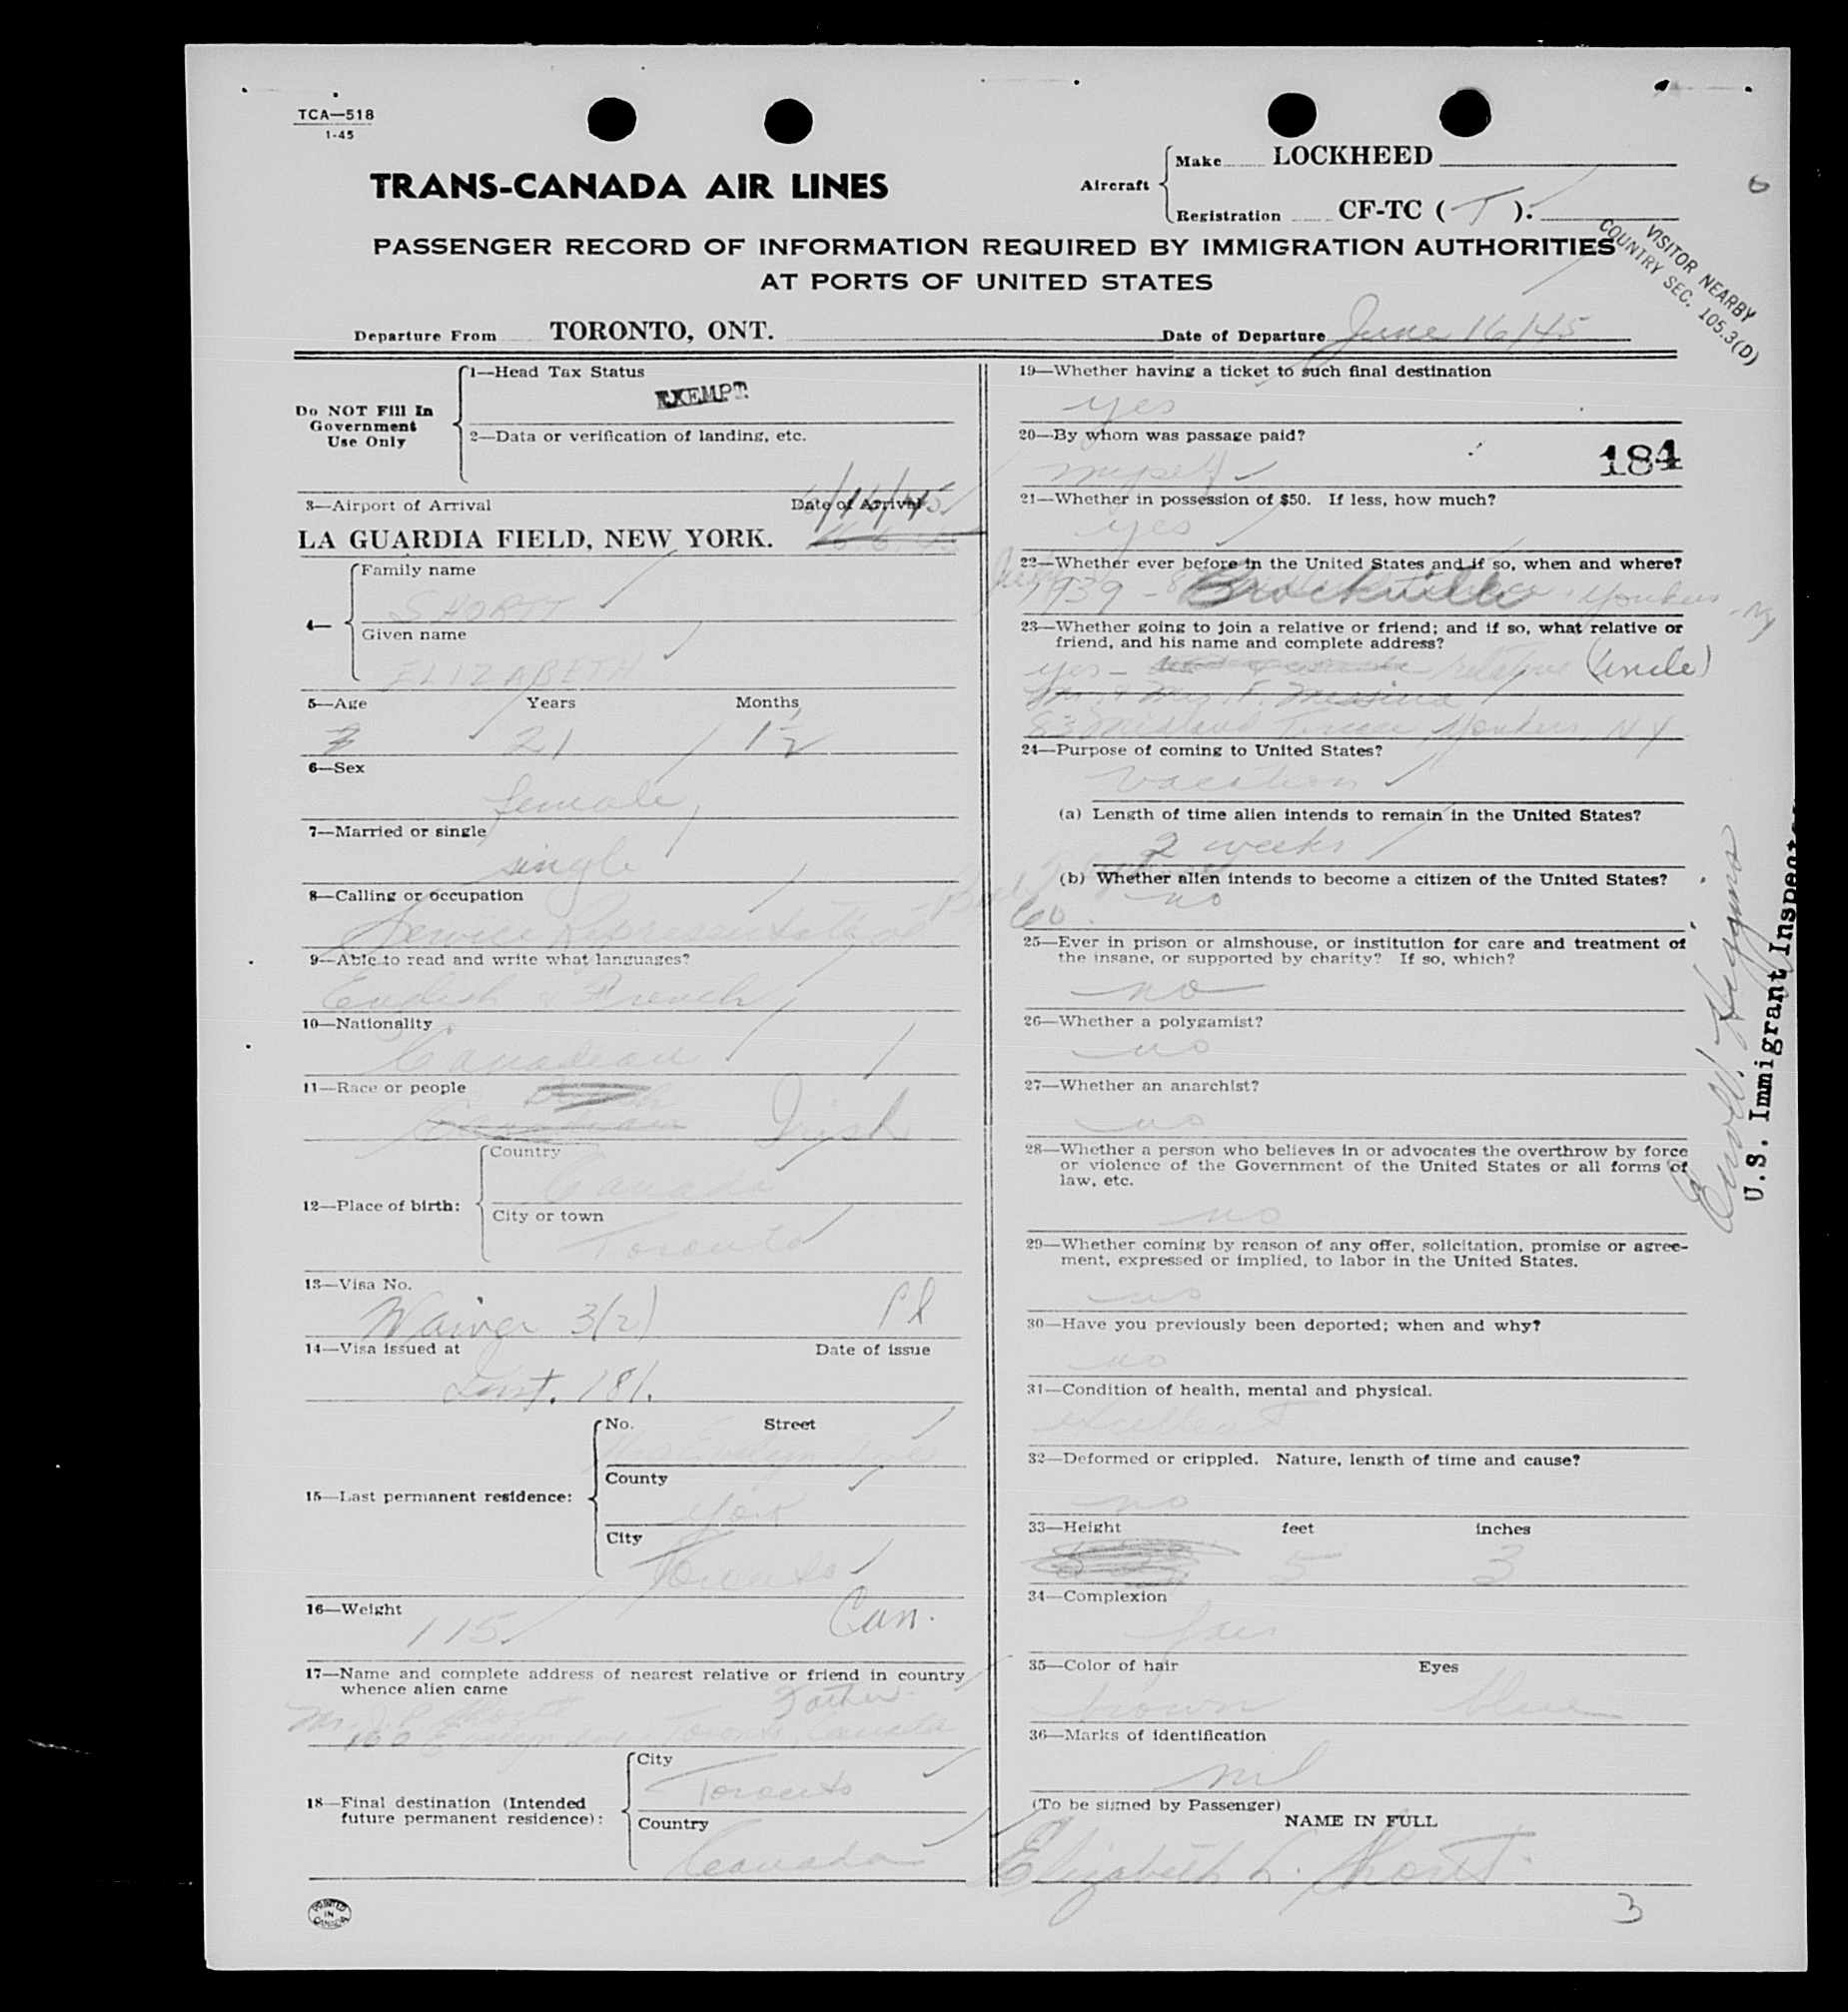 TCA—518
1-45
TRANS-CANADA AIR LINES
Aircraft
Make LOCKHEED
Registration CF-TC ( T ).
PASSENGER RECORD OF INFORMATION REQUIRED BY IMMIGRATION AUTHORITIES
AT PORTS OF UNITED STATES
VISITOR NEARBY
COUNTRY SEC. 105.3(D)
Departure From TORONTO, ONT. Date of Departure June 16/45
Do NOT Fill In
Government
Use Only
1—Head Tax Status
EXEMPT
2—Data or verification of landing, etc.
3—Airport of Arrival Date of Arrival
6/16/45
LA GUARDIA FIELD, NEW YORK.
4—
Family name
SHORTT
Given name
ELIZABETH
5—Age Years Months
21 1½
6—Sex
female
7—Married or single
single
8—Calling or occupation
Service Representative - Bell
Co.
9—Able to read and write what languages?
English & French
10—Nationality
Canadian
11—Race or people
Irish
12—Place of birth:
Country
Canada
City or town
Toronto
13—Visa No.
Waiver 3(2)
14—Visa issued at Date of issue
Inst. 181.
15—Last permanent residence:
No. Street
Evelyn Ave
County
York
City
Toronto
16—Weight
115 Can.
17—Name and complete address of nearest relative or friend in country
whence alien came
Father
Mr. Shortt
Evelyn Ave Toronto, Canada
18—Final destination (Intended
future permanent residence):
City
Toronto
Country
Canada
PRINTED
IN
CANADA
19—Whether having a ticket to such final destination
yes
20—By whom was passage paid?
184
myself
21—Whether in possession of $50. If less, how much?
yes
22—Whether ever before in the United States and if so, when and where?
1939 - Brockville Yonkers - NY
23—Whether going to join a relative or friend; and if so, what relative or
friend, and his name and complete address?
yes - relative (uncle)
Mr. & Mrs. F. Messina
Yonkers, NY
24—Purpose of coming to United States?
vacation
(a) Length of time alien intends to remain in the United States?
2 weeks
(b) Whether alien intends to become a citizen of the United States?
no
25—Ever in prison or almshouse, or institution for care and treatment of
the insane, or supported by charity? If so, which?
no
26—Whether a polygamist?
no
27—Whether an anarchist?
no
28—Whether a person who believes in or advocates the overthrow by force
or violence of the Government of the United States or all forms of
law, etc.
no
29—Whether coming by reason of any offer, solicitation, promise or agree-
ment, expressed or implied, to labor in the United States.
no
30—Have you previously been deported; when and why?
no
31—Condition of health, mental and physical.
excellent
32—Deformed or crippled. Nature, length of time and cause?
no
33—Height feet inches
5 3
34—Complexion
fair
35—Color of hair Eyes
brown blue
36—Marks of identification
nil
(To be signed by Passenger)
NAME IN FULL
Elizabeth L. Shortt
3
U.S. Immigrant Inspector